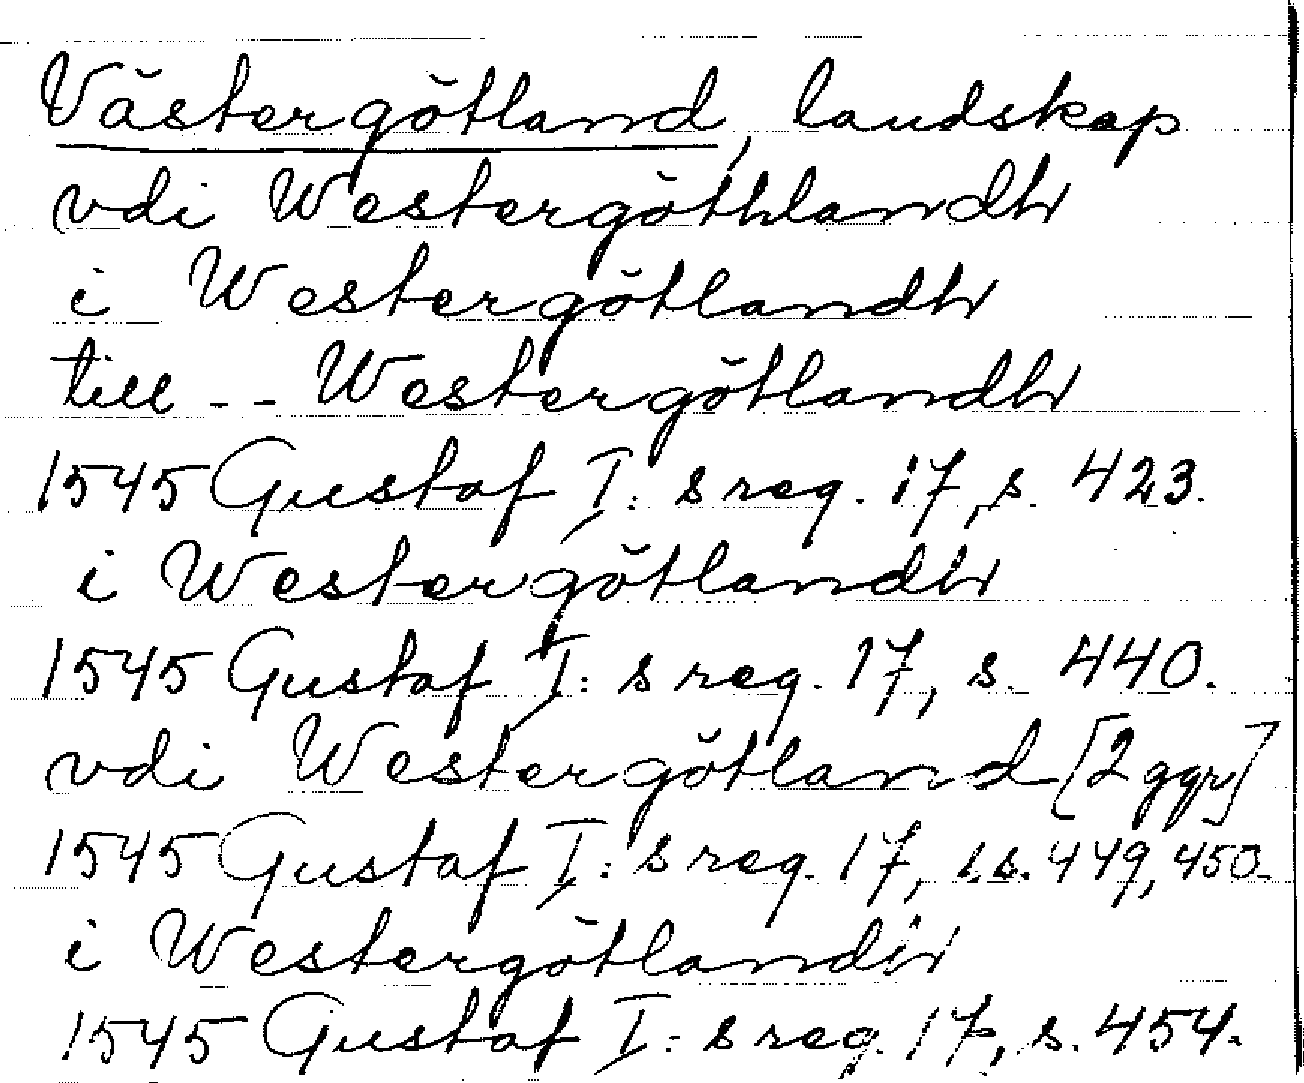 Västergötland, landskap
vdi Westergöthlandh
i Westergötlandh
till -- Westergötlandh
1545 Gustaf I: s reg. 17, s. 423.
i Westergötlandh
1545 Gustaf I: s reg. 17, s. 440.
vdi Westergötland [2 ggr]
1545 Gustaf I: s reg. 17, s.s. 449, 450.
i Westergötlandh
1545 Gustaf I: s reg. 17, s. 454.